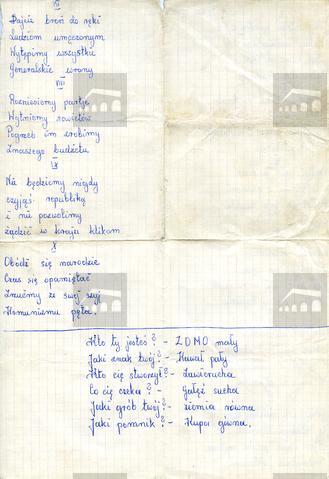 VII
Dajcie broń do ręki
Ludziom umęczonym
Wytępimy wszystkie
Generalskie wrony
VIII
Rozniesiemy partje
Wytniemy sowietów
Pogrzeb im zrobimy
Znaszego budżetu
IX
Nie będziemy nigdy
czyjąś republiką
i nie pozwolimy
rządzić w kraju klikom
X
Obódź się narodzie
Czas się opamiętać
Zrzućmy ze swej szyi
Komunizmu pęta.
Kto ty jesteś? - ZOMO mały
Jaki znak twój? - Kawał pały
Kto cię stworzył? - Zawierucha
Co cię czeka? - Gałęź sucha
Jaki grób twój? - ziemia równa
Jaki pomnik? - Kupa gówna.